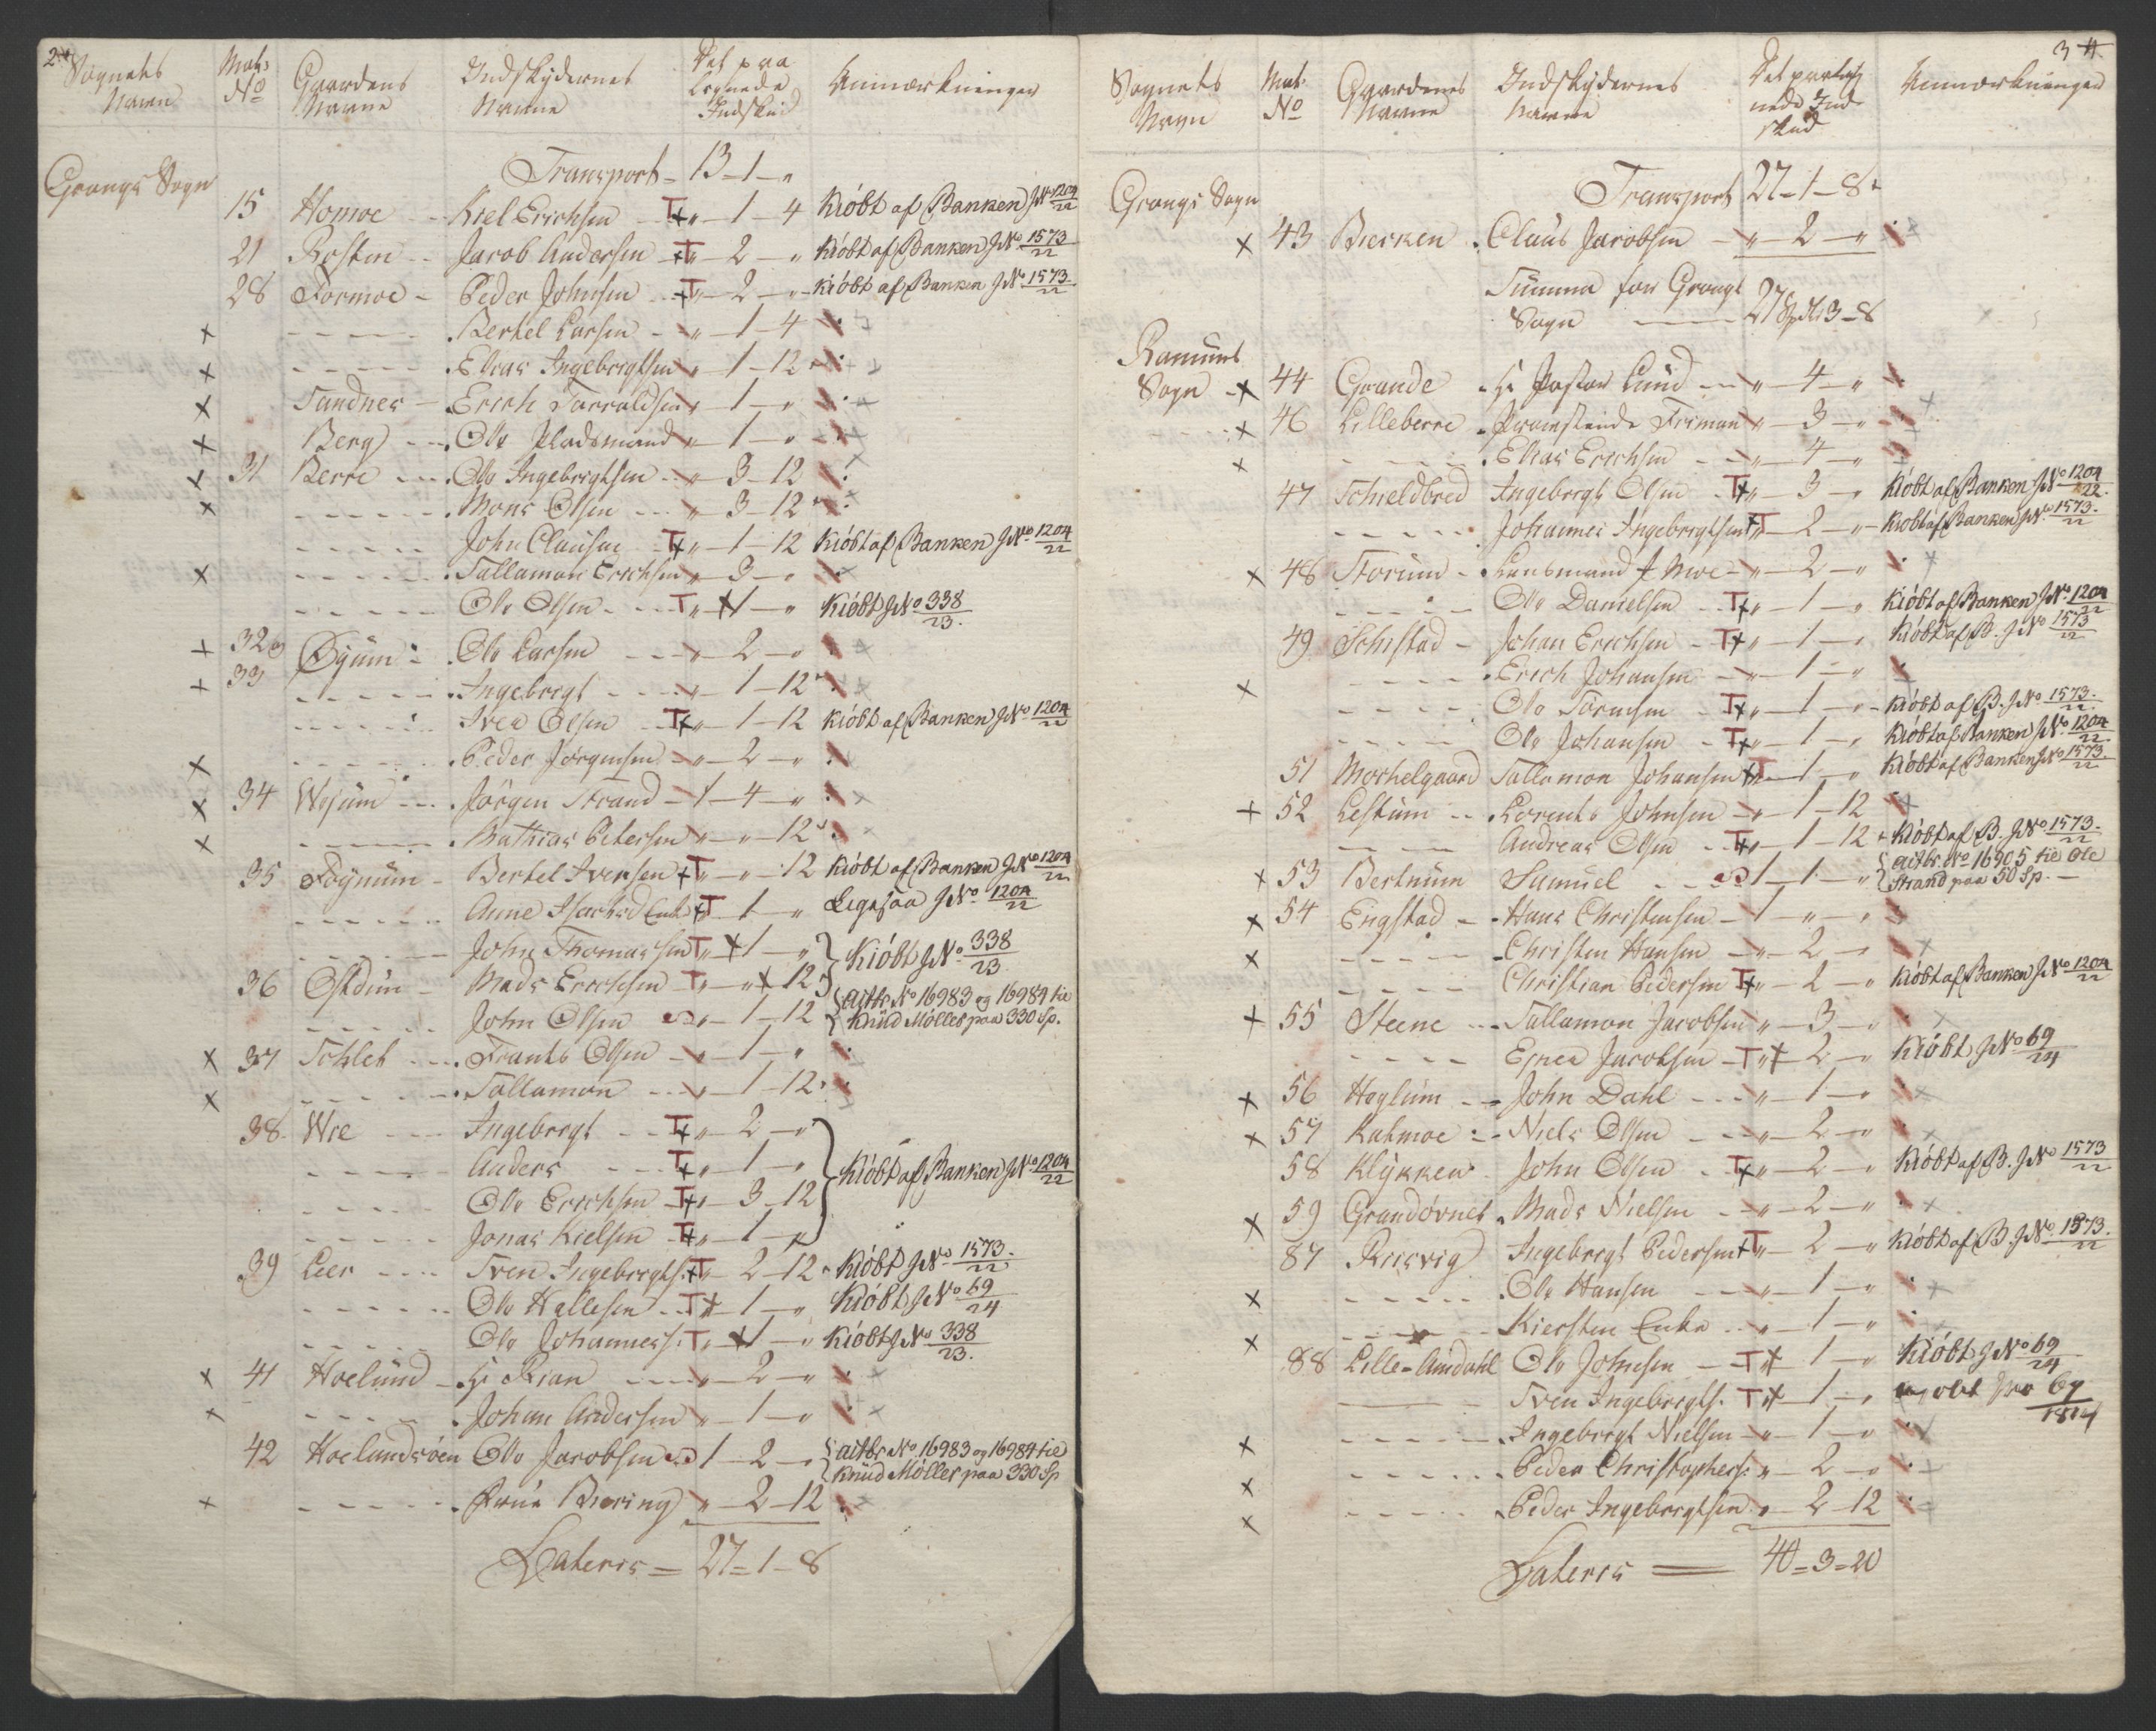 2
Sognets Navn Mat: No Gaardens Navne Indskydernes Navne Det paa lignede Indskud Anmærkninger
Grongs Sogn Transport 13-1-"
15 Homoe Kiel Erichsen T " 1-4 Kiöbt af Banken J No 1204/22
21 Rosten Jacob Andersen T " 2 " Kiöbt af Banken J No 1573/22
28 Formoe Peder Johnsen T " 2 " Kiöbt af Banken J No 1573/22
x Bertel Larsen " 1-4
x Elias Ingebrigtsen " 1-12
x Sandnes Erich Torroldsen " 1 "
x Berg Ole Pladsmand " 1 "
x 31 Berre Ole Ingebrigtsen " 3-12
x Mons Olsen " 3-12
John Clausen T " 1-12 Kiöbt af Banken J No 1204/22
x Tallaman Erichsen " 3 "
Ole Olsen T " 1 " Kiöbt J No 338/23.
x 32 og Öyüm Ole Larsen " 2 "
x 33 Ingebrigt " 1-12
Iver Olsen T " 1-12 Kiöbt af Banken J No 1204/22
x Peder Jörgensen " 2 "
x 34 Wiſüm Jörgen Strand 1-4 "
x Mathias Petersen " " 12
35 Föynüm Bertel Iversen T " " 12 Kiöbt af Banken J No 1204/22
Anne Enke T 1 " Ligesaa J No 1204/22
John Thomassen T " 1 " } Kiöbt J No 338/23
36 Östdün Mads Erichsen T " " 12
John Olsen " 1-12 { No 16983 og 16984 til Knüd Möller paa 330 Sp.
x 37 Schlet Frants Olsen " 1 "
x Tallaman " 1-12
38. Wie Ingebrigt T " 2 "
Anders T " 1 " } Kiöbt af Banken J No 1204/22
Ole Erichsen T " 3-12
Jonas Kielsen T " 1 "
39 Leer Sven Ingebrigts. T " 2-12 Kiöbt J No 1573/22
Ole Hallesen T " 1 " Kiöbt J No 69/24
Ole Johanness. T " 1 " Kiöbt J No 338/23.
x 41 Hoelund Hr Rian " 2 "
x Johan Andersen " 1 "
42 Hoelundsöen Ole Jacobsen 1-2 " { No 16983 og 16984 til Knüd Möller paa 330 Sp
x Frue Biering " 2-12
Lateris = 27=1-8
3
Sognets Navn Mat: No Gaardenes Navne Indskydernes Navne Det paalignede Indskud Anmærkninger
Grongs Sogn Transport 27-1-8
x 43 Bierken Claus Jacobsen " 2 "
Summa for Grongs Sogn 27 Spdlr 3-8
Ranums Sogn
x 44 Grande Hr Pastor Lund " 4 "
x 46 Lilleberre Premierleut. Friman " 3 "
x Elias Erichsen " 4 "
47 Schieldbred Ingebrigt Olsen T " 3 " Kiöbt af Banken J No 1204/22.
Johannes Ingebrigtsen T " 2 " Kiöbt af Banken J No 1573/22
x 48 Storüm Lensmand J Moe " 2 "
Ole Danielsen T " 1 " Kiöbt af Banken J No 1204/22
49 Schistad Johan Erichsen T " 1 " Kiöbt af B. J No 1573/22
x Erich Johansen " 1 "
Ole Törresen T " 1 " Kiöbt af B. J No 1573/22.
Ole Johansen T " 1 " Kiöbt af Banken J No 1204/22.
51 Mörkelgaard Tallamon Johansen T 1 " Kiöbt af Banken J No 1573/22
x 52 Lestüm Lorents Johnsen " 1-12
Andreas Olsen T " 1-12 Kiöbt af B. J No 1573/22
x 53 Bertnüm Samüel 1-1 " { No 16905 til Ole Strand paa 50 Sp.
x 54 Engstad Hans Christensen 1 " "
x Christen Hansen " 2 "
Christian Pedersen T " 2 " Kiöbt af Banken J No 1204/22
x 55 Steene Tallamon Jacobsen " 3 "
Esper Jacobsen T " 2 " Kiöbt J No 69/24
x 56 Heglüm John Dahl " 1 "
x 57 Katmoe Niels Olsen " 2 "
58 Klykken John Olsen T " 2 " Kiöbt af B. J No 1573/22
x 59 Grandövnet Mads Nielsen " 2 "
87 Rusvig Ingebrigt Pedersen T " 2 " Kiöbt af B. J No 1573/22.
x Ole Hansen " 1 "
x Kiersten Enke " 1 "
88 Lille-Amdahl Ole Johnsen T 1 " Kiöbt J No 69/24
Sven Ingebrigts. T 1 " Kjöbt J No 69/1824
x Ingebrigt Nielsen " 1 "
x Peder Christophers: " 2 "
x Peder Ingebrigtsen " 2-12
Lateris = 40=3=20